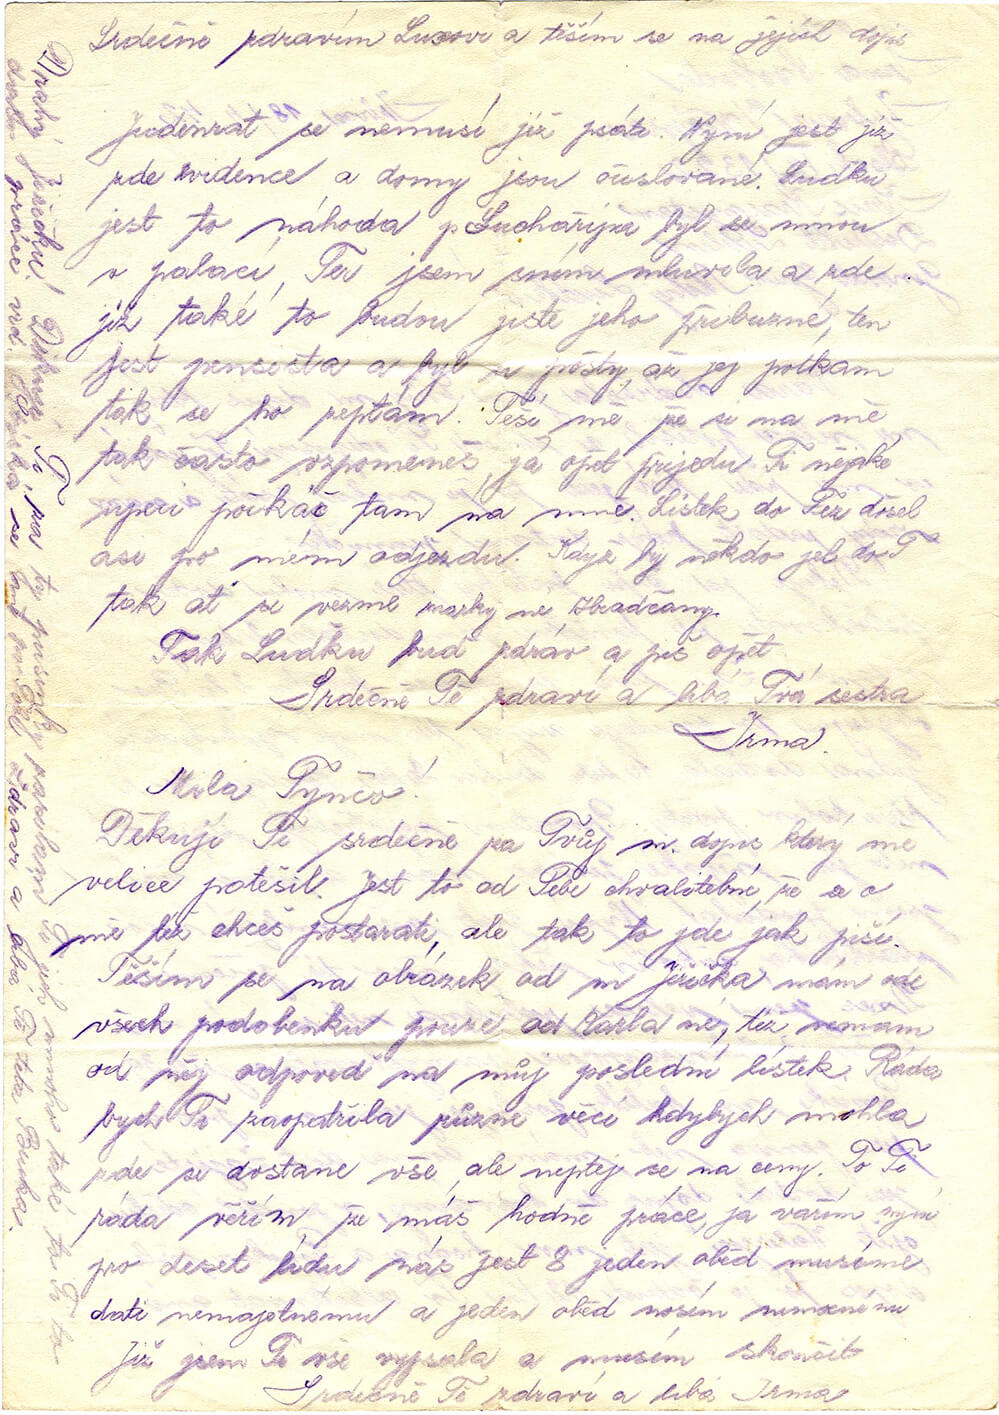 Srdečně zdravím Luxovi a těším se na jejich dopis
Judenrat se nemusí již psáti. Nyní jest již
zde evidence a domy jsou číslované. Luďku
jest to náhoda p Suchařípa byl se mnou
v palaci, Též jsem sním mluvila a zde
již také to budou jistě jeho příbuzné, ten
jest pensista a byl u pošty, až jej potkam
tak se ho zeptám. Těší mě že si na mě
tak často vzpomeneš, já opět přijedu Ti nějaké
počkáš tam na mně. Lístek do Též došel
asi po mém odjezdu. Když by někdo jel do T
tak ať si vezme marky ne Hradčany.
Tak Luďku buď zdráv a piš opět
Srdečně Tě zdraví a líbá Tvá sestra
Irma.
Milá Tynčo!
Děkuji Ti srdečně za Tvůj m. dopis který mě
velice potěšil. Jest to od Tebe chvalitebné, že se o
mě též chceš postarati, ale tak to jde jak píši.
Těším se na obrázek od m Jiříčka mám ode
všech podobenku pouze od Karla né, též nemám
od něj odpověď na můj poslední lístek. Ráda
bych Ti zaopatřila různe věci kdybych mohla
zde se dostane vše, ale neptej se na ceny. To Ti
ráda věřím že máš hodně práce, já vařím nyní
pro deset lidu nás jest 8 jeden oběd musíme
dati nemajetnému a jeden oběd nosím nemocnému
Již jsem Ti vše vypsala a musím skončit
Srdečně Tě zdraví a líbá Irma
Drahý Jiříčku! Děkuji Ti, za ty pusinky posílám Ti jich mnoho také za to
práce Zdraví a líbá Tě teta Binka.